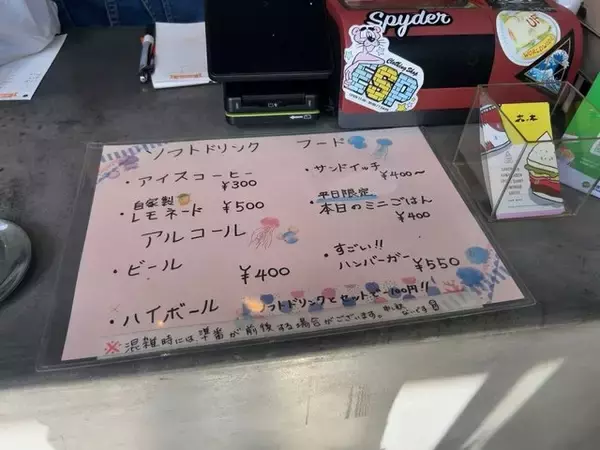 Spyder
Clothing Shop
ESP
ソフトドリンク
・アイスコーヒー
¥300
・自家製
レモネード ¥500
アルコール
・ビール ¥400
・ハイボール
フード
・サンドイッチ
¥400～
平日限定
・本日のミニごはん
¥400
・すごい!!
ハンバーガー ¥550
ソフトドリンクとセットで-100円!!
※混雑時には準番が前後する場合がございます。